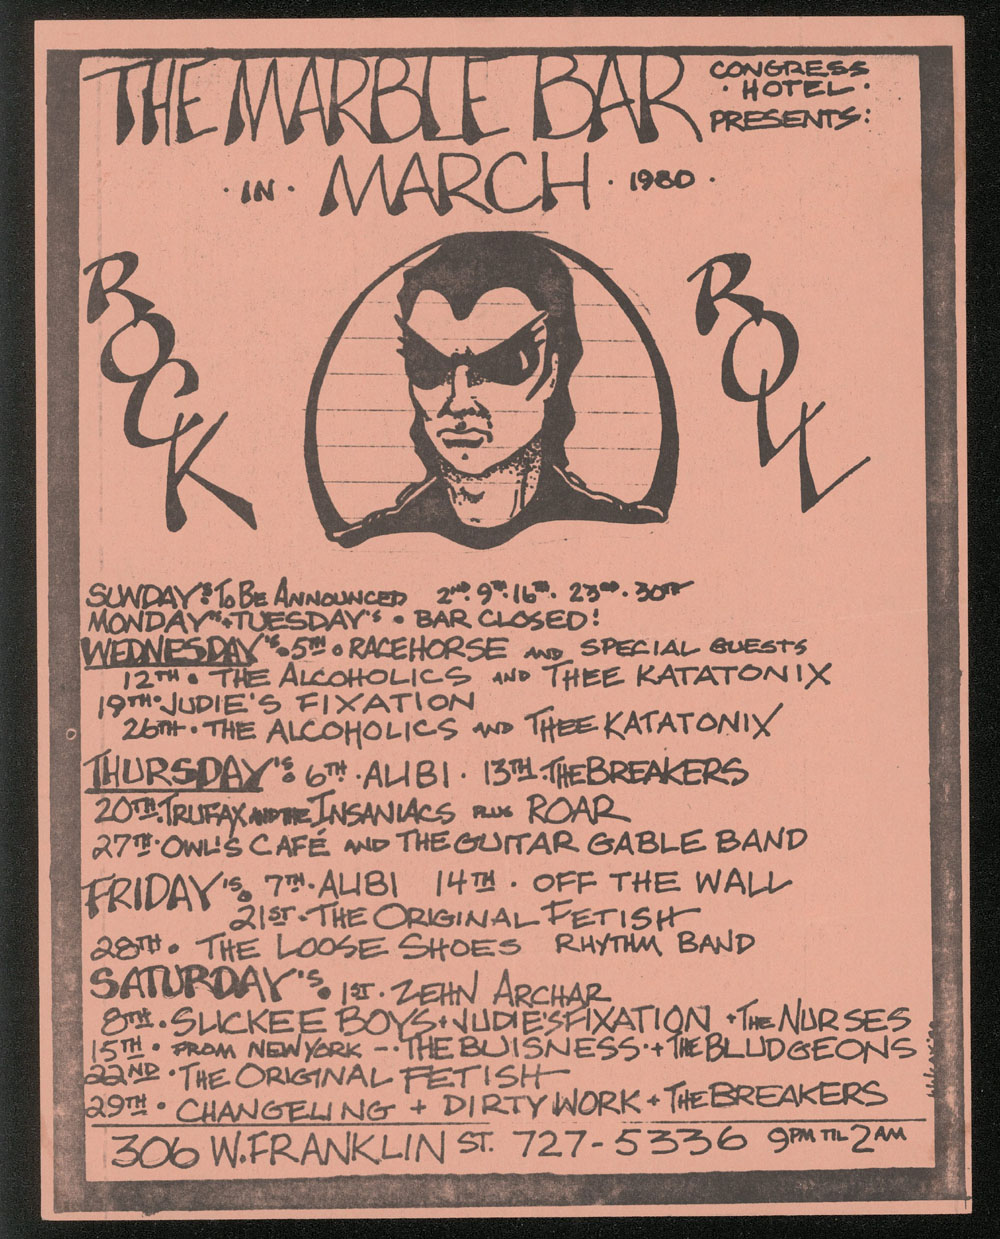 THE MARBLE BAR
CONGRESS
· HOTEL ·
PRESENTS:
· IN · MARCH · 1980 ·
ROCK
ROLL
SUNDAY'S: TO BE ANNOUNCED 2ND. 9TH. 16TH. 23RD. 30TH
MONDAY'S + TUESDAY'S · BAR CLOSED!
WEDNESDAY'S · 5TH · RACEHORSE AND SPECIAL GUESTS
12TH · THE ALCOHOLICS AND THEE KATATONIX
19TH · JUDIE'S FIXATION
26TH · THE ALCOHOLICS AND THEE KATATONIX
THURSDAY'S: 6TH · ALIBI · 13TH · THE BREAKERS
20TH · TRUFAX AND THE INSANIACS PLUS ROAR
27TH · OWL'S CAFÉ AND THE GUITAR GABLE BAND
FRIDAY'S. 7TH · ALIBI 14TH · OFF THE WALL
21ST · THE ORIGINAL FETISH
28TH · THE LOOSE SHOES RHYTHM BAND
SATURDAY'S. 1ST · ZEHN ARCHAR
8TH · SLICKEE BOYS + JUDIE'S FIXATION + THE NURSES
15TH · FROM NEW YORK – THE BUISNESS · + THE BLUDGEONS
22ND · THE ORIGINAL FETISH
29TH · CHANGELING + DIRTY WORK + THE BREAKERS
306 W. FRANKLIN ST. 727-5336 9PM TIL 2AM